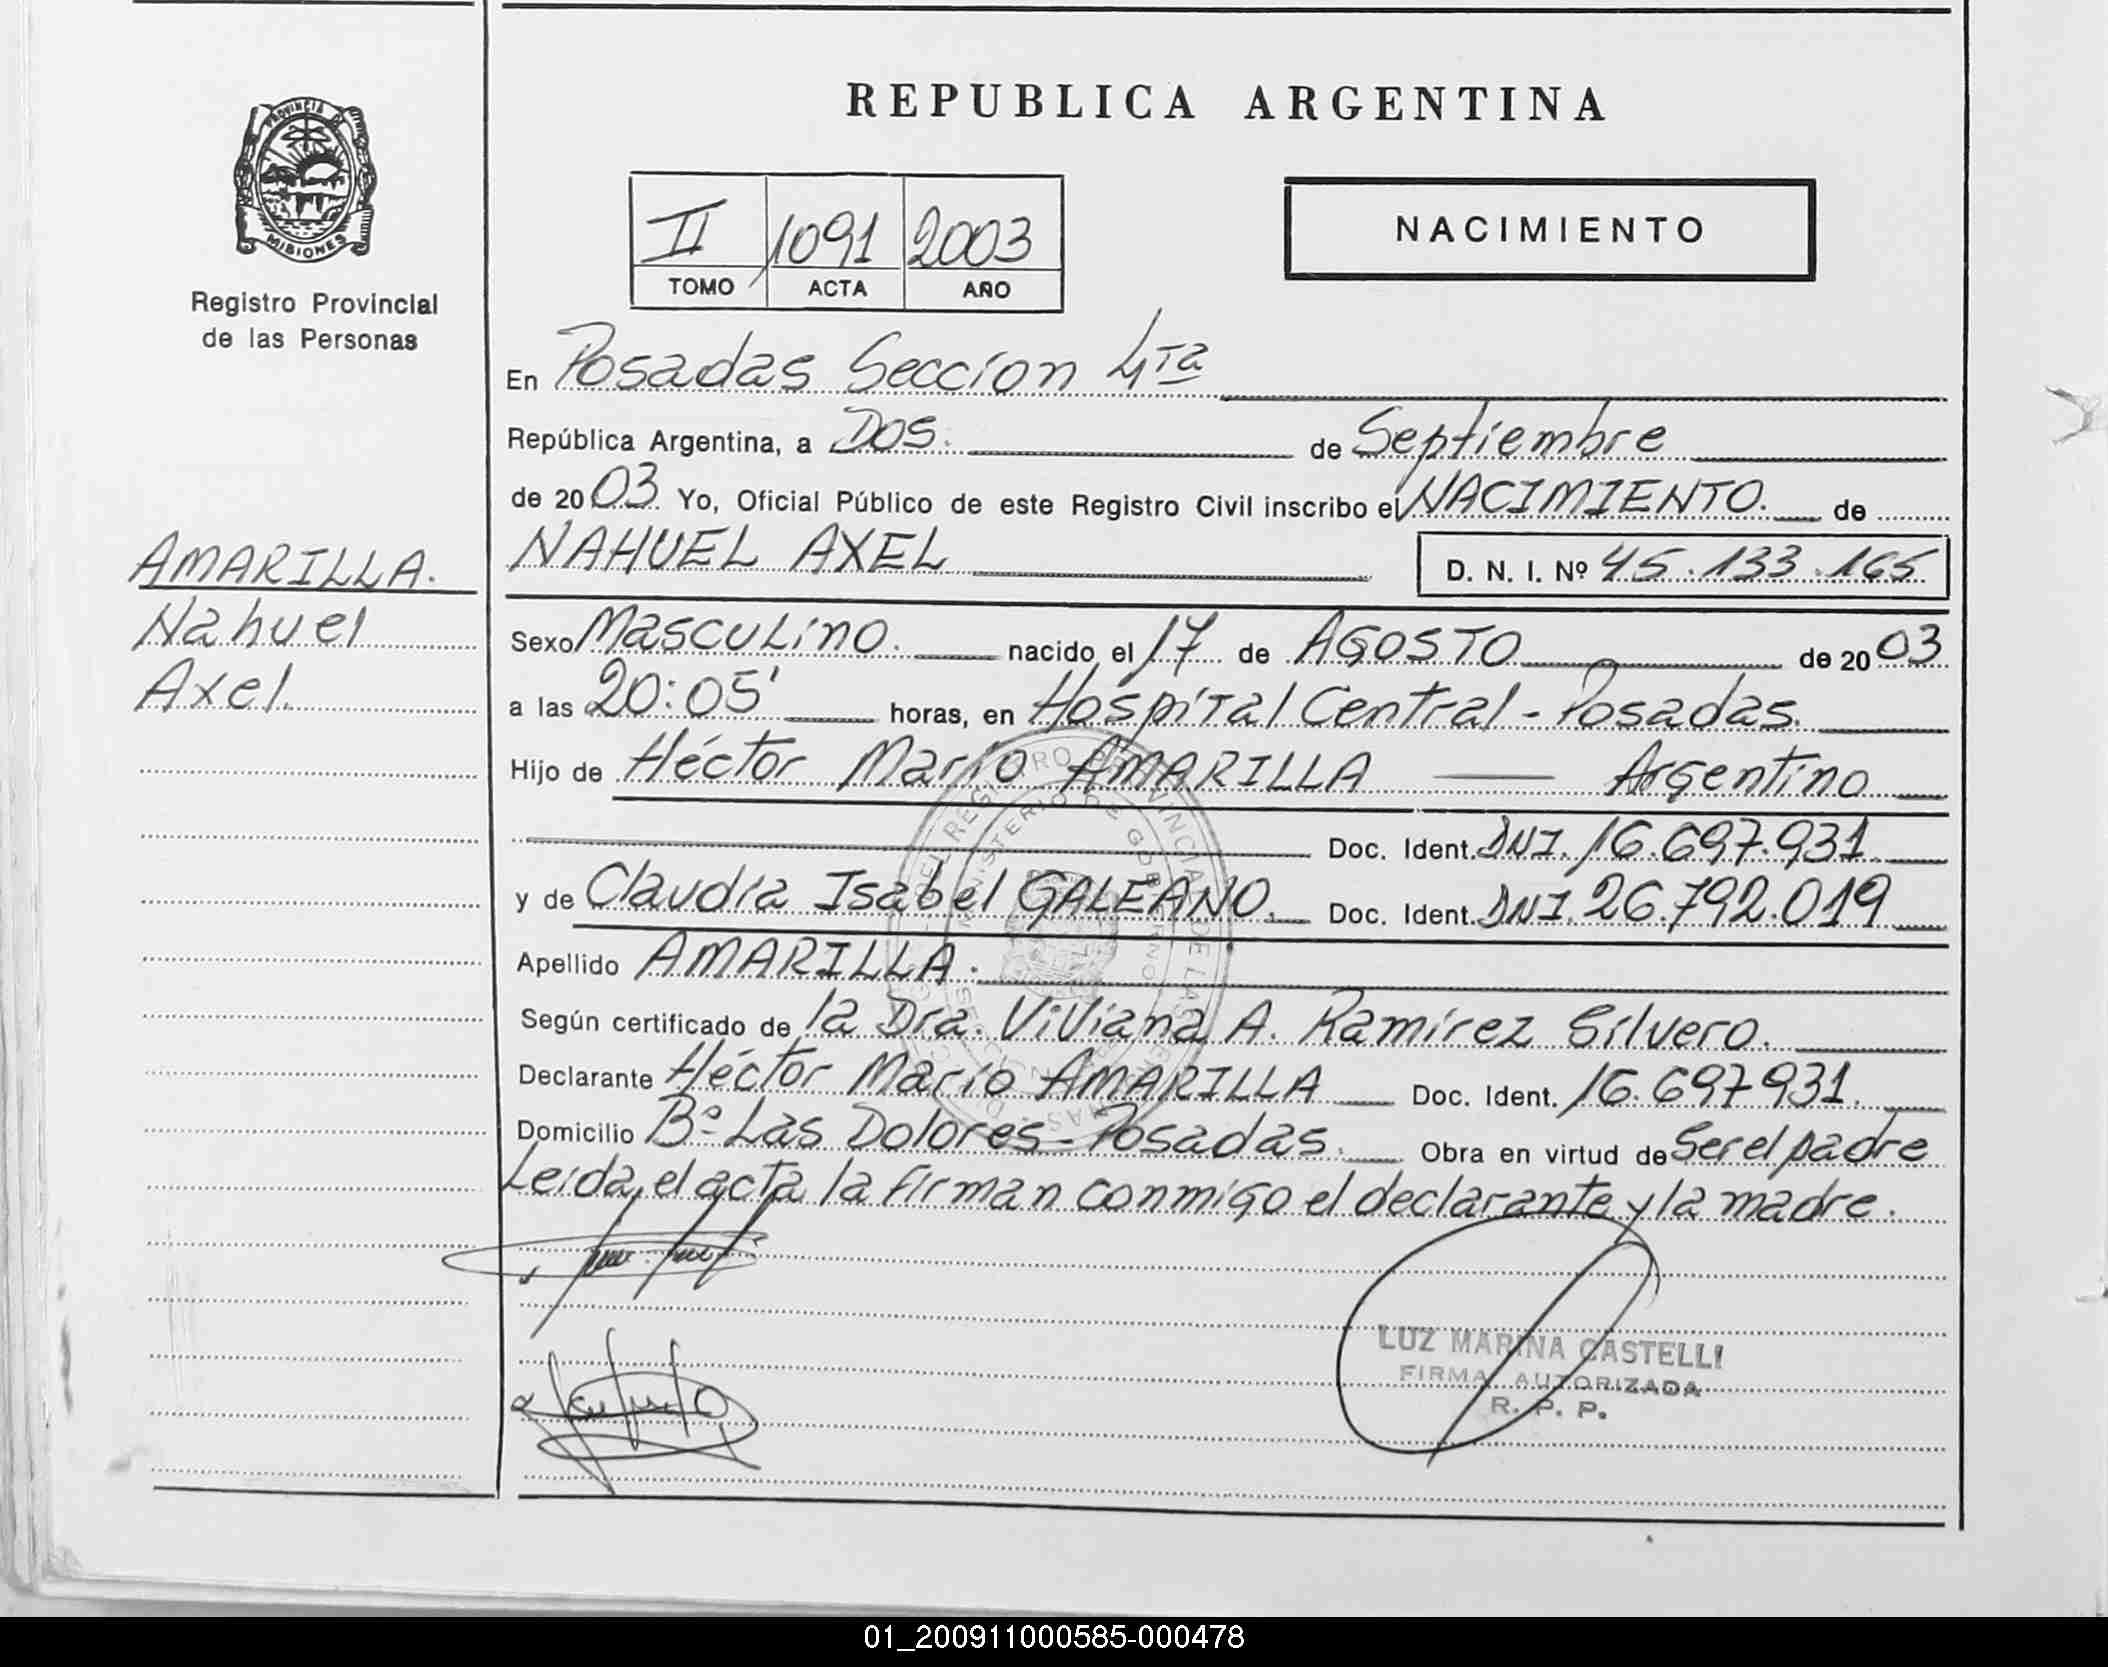 REPUBLICA ARGENTINA
PROVINCIA DE
MISIONES
Registro Provincial
de las Personas
II 1091 2003
TOMO ACTA AÑO
NACIMIENTO
En Posadas Seccion 4ta
República Argentina, a Dos. de Septiembre
de 2003 Yo, Oficial Público de este Registro Civil inscribo el NACIMIENTO. de
NAHUEL AXEL D. N. I. Nº 45.133.165
AMARILLA.
Nahuel
Axel.
Sexo Masculino. nacido el 17 de AGOSTO de 2003
a las 20:05' horas, en Hospital Central - Posadas.
Hijo de Héctor Mario AMARILLA Argentino
Doc. Ident. DNI. 16.697.931.
y de Claudia Isabel GALEANO. Doc. Ident. DNI. 26.792.019
Apellido AMARILLA.
Según certificado de la Dra. Viviana A. Ramirez Silvero.
Declarante Héctor Mario AMARILLA Doc. Ident. 16.697.931.
Domicilio Bº Las Dolores - Posadas. Obra en virtud de Ser el padre
Leida, el acta la firman conmigo el declarante y la madre.
LUZ MARINA CASTELLI
FIRMA AUTORIZADA
R. P. P.
01_200911000585-000478